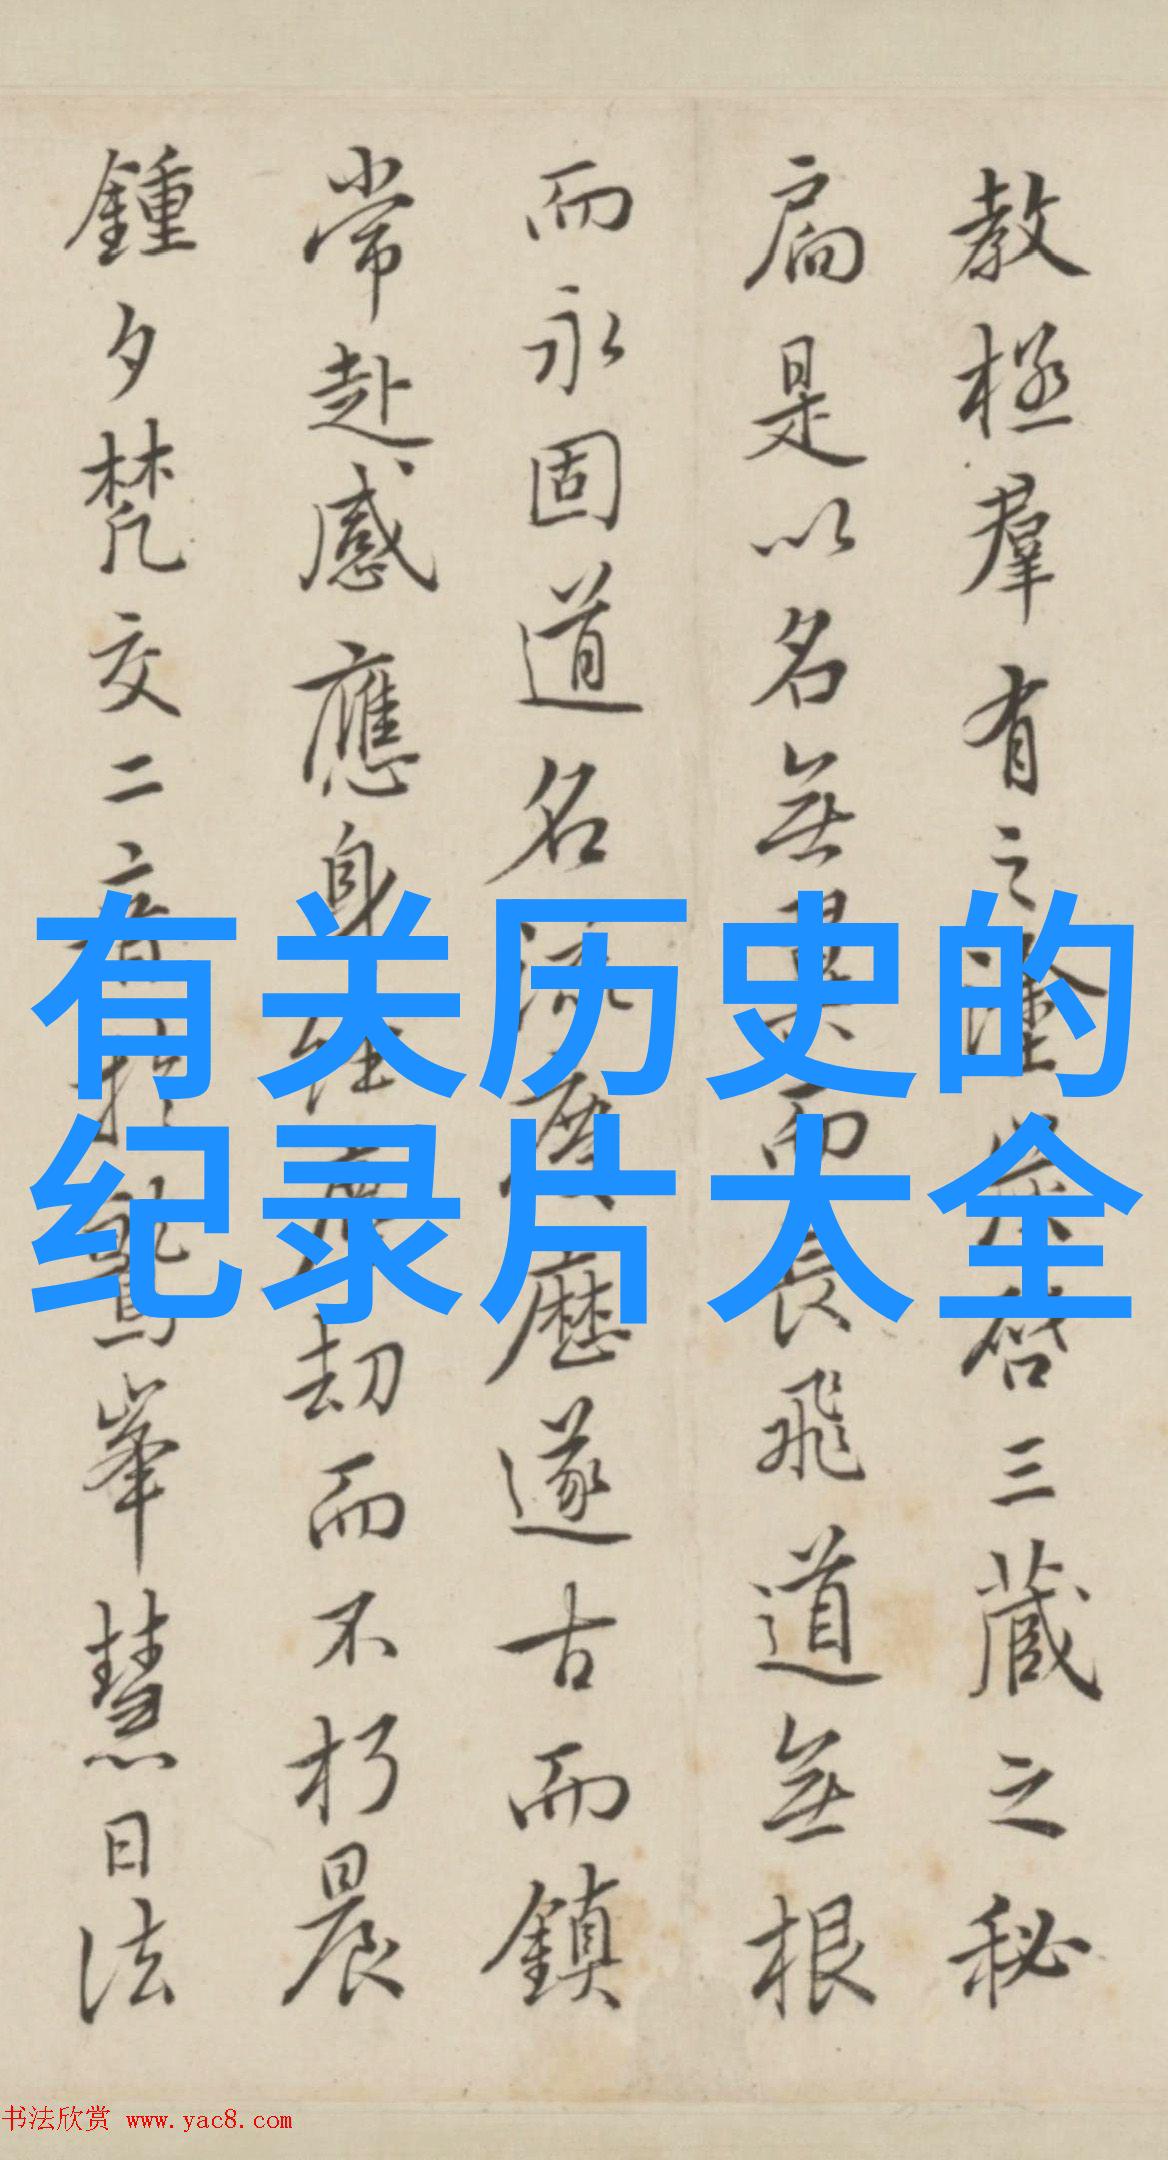 教極羣有之塗炭啓三藏之秘
扃是以名無翼而長飛道無根
而永固道名流慶歷遂古而鎮
常赴感應身經塵劫而不朽晨
鍾夕梵交二音於鷲峯慧日法
有关历史的
纪录片大全
书法欣赏 www.yac8.com